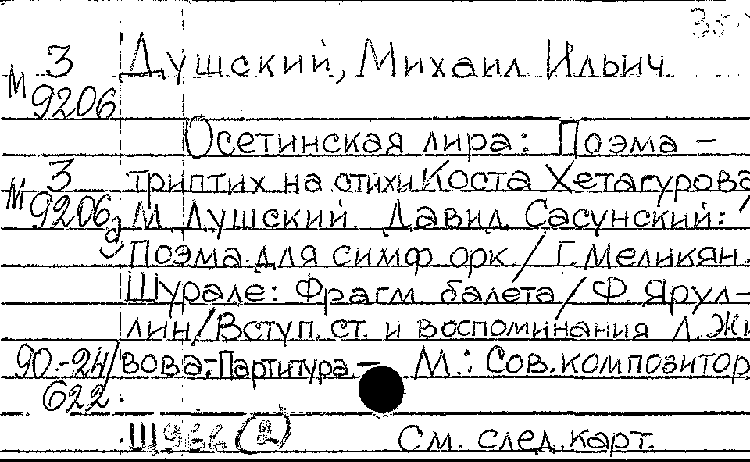 35
М 3 Душский, Михаил Ильич.
9206
Осетинская лира: Поэма –
М 3 триптих на стихи Коста Хетагурова /
9206д М. Душский. Давид Сасунский:
Поэма для симф. орк. / Г. Меликян.
Шурале: Фрагм. балета / Ф. Ярул-
лин / Вступ. ст. и воспоминания Л. Жи
90.-24/ вова.- Партитура.– М.: Сов. композитор
622.
Щ966 (2) См. след. карт.